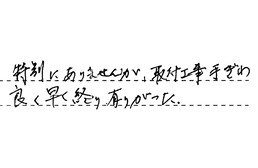 特別にありませんが、取付工事手ぎわ
良く早く終り有りがつた.